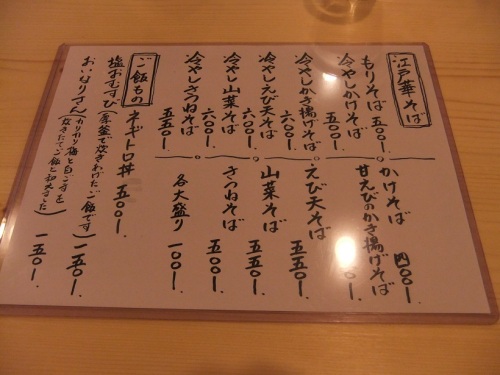 江戸華そば
もりそば 五〇〇一.
冷やしかけそば 五〇〇一.
冷やしかき揚げそば 六〇〇一.
冷やしえび天そば 六〇〇一.
冷やし山菜そば 六〇〇一.
冷やしきつねそば 五五〇一.
かけそば 四〇〇一.
甘えびのかき揚げそば
えび天そば 五五〇一.
山菜そば 五五〇一.
きつねそば 五〇〇一.
各大盛り 一〇〇一.
ご飯もの
ネギトロ丼 五〇〇一.
塩おむすび(釜で炊きあげたご飯です) 一五〇一.
おいなりさん(カリカリ梅と白ごまを
炊きたてご飯と和えました) 一五〇一.